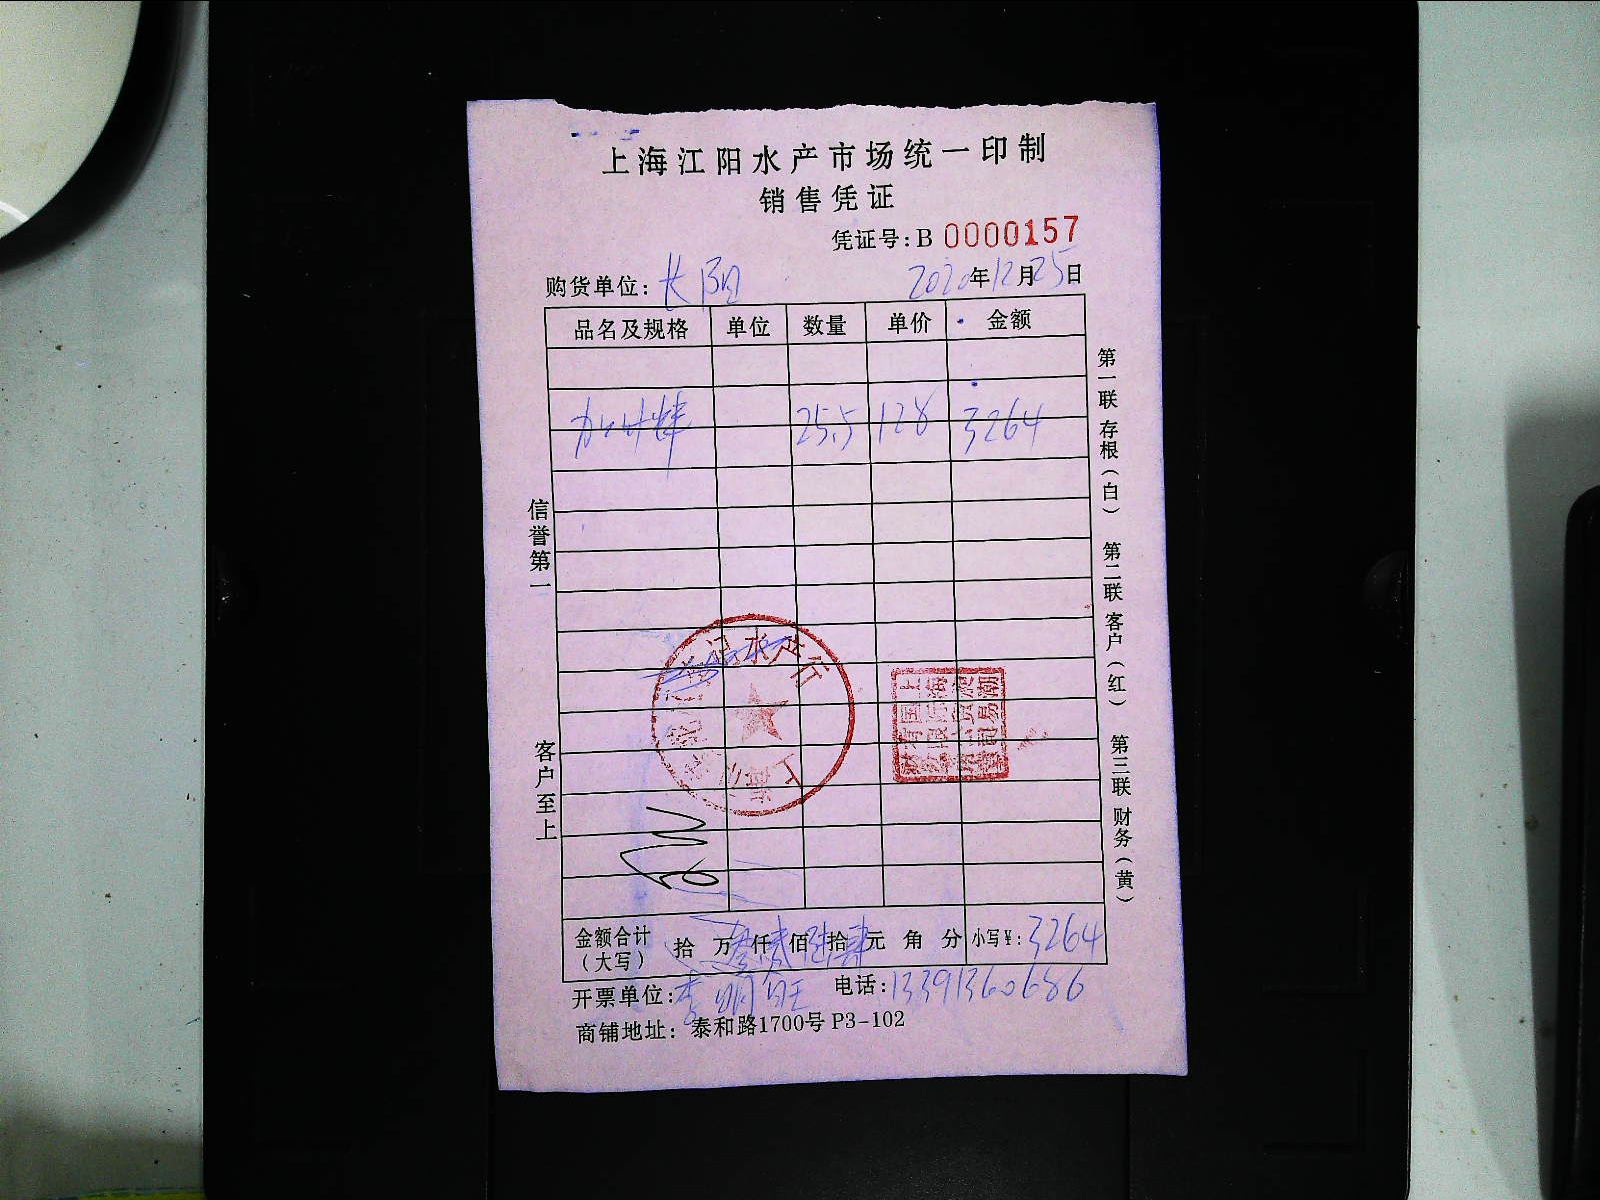 上海江阳水产市场统一印制
销售凭证
凭证号:B 0000157
购货单位:长阳 2020年12月25日
品名及规格 单位 数量 单价 金额
加 25.5 128 3264
信誉第一
客户至上
第一联 存根(白) 第二联 客户(红) 第三联 财务(黄)
水产行
上海
上海浪潮
国际贸易
有限公司
金额合计(大写) 拾 万叁仟贰佰陆拾肆元 角 分 小写¥:3264
开票单位:李明旺 电话:13391360686
商铺地址: 泰和路1700号 P3-102